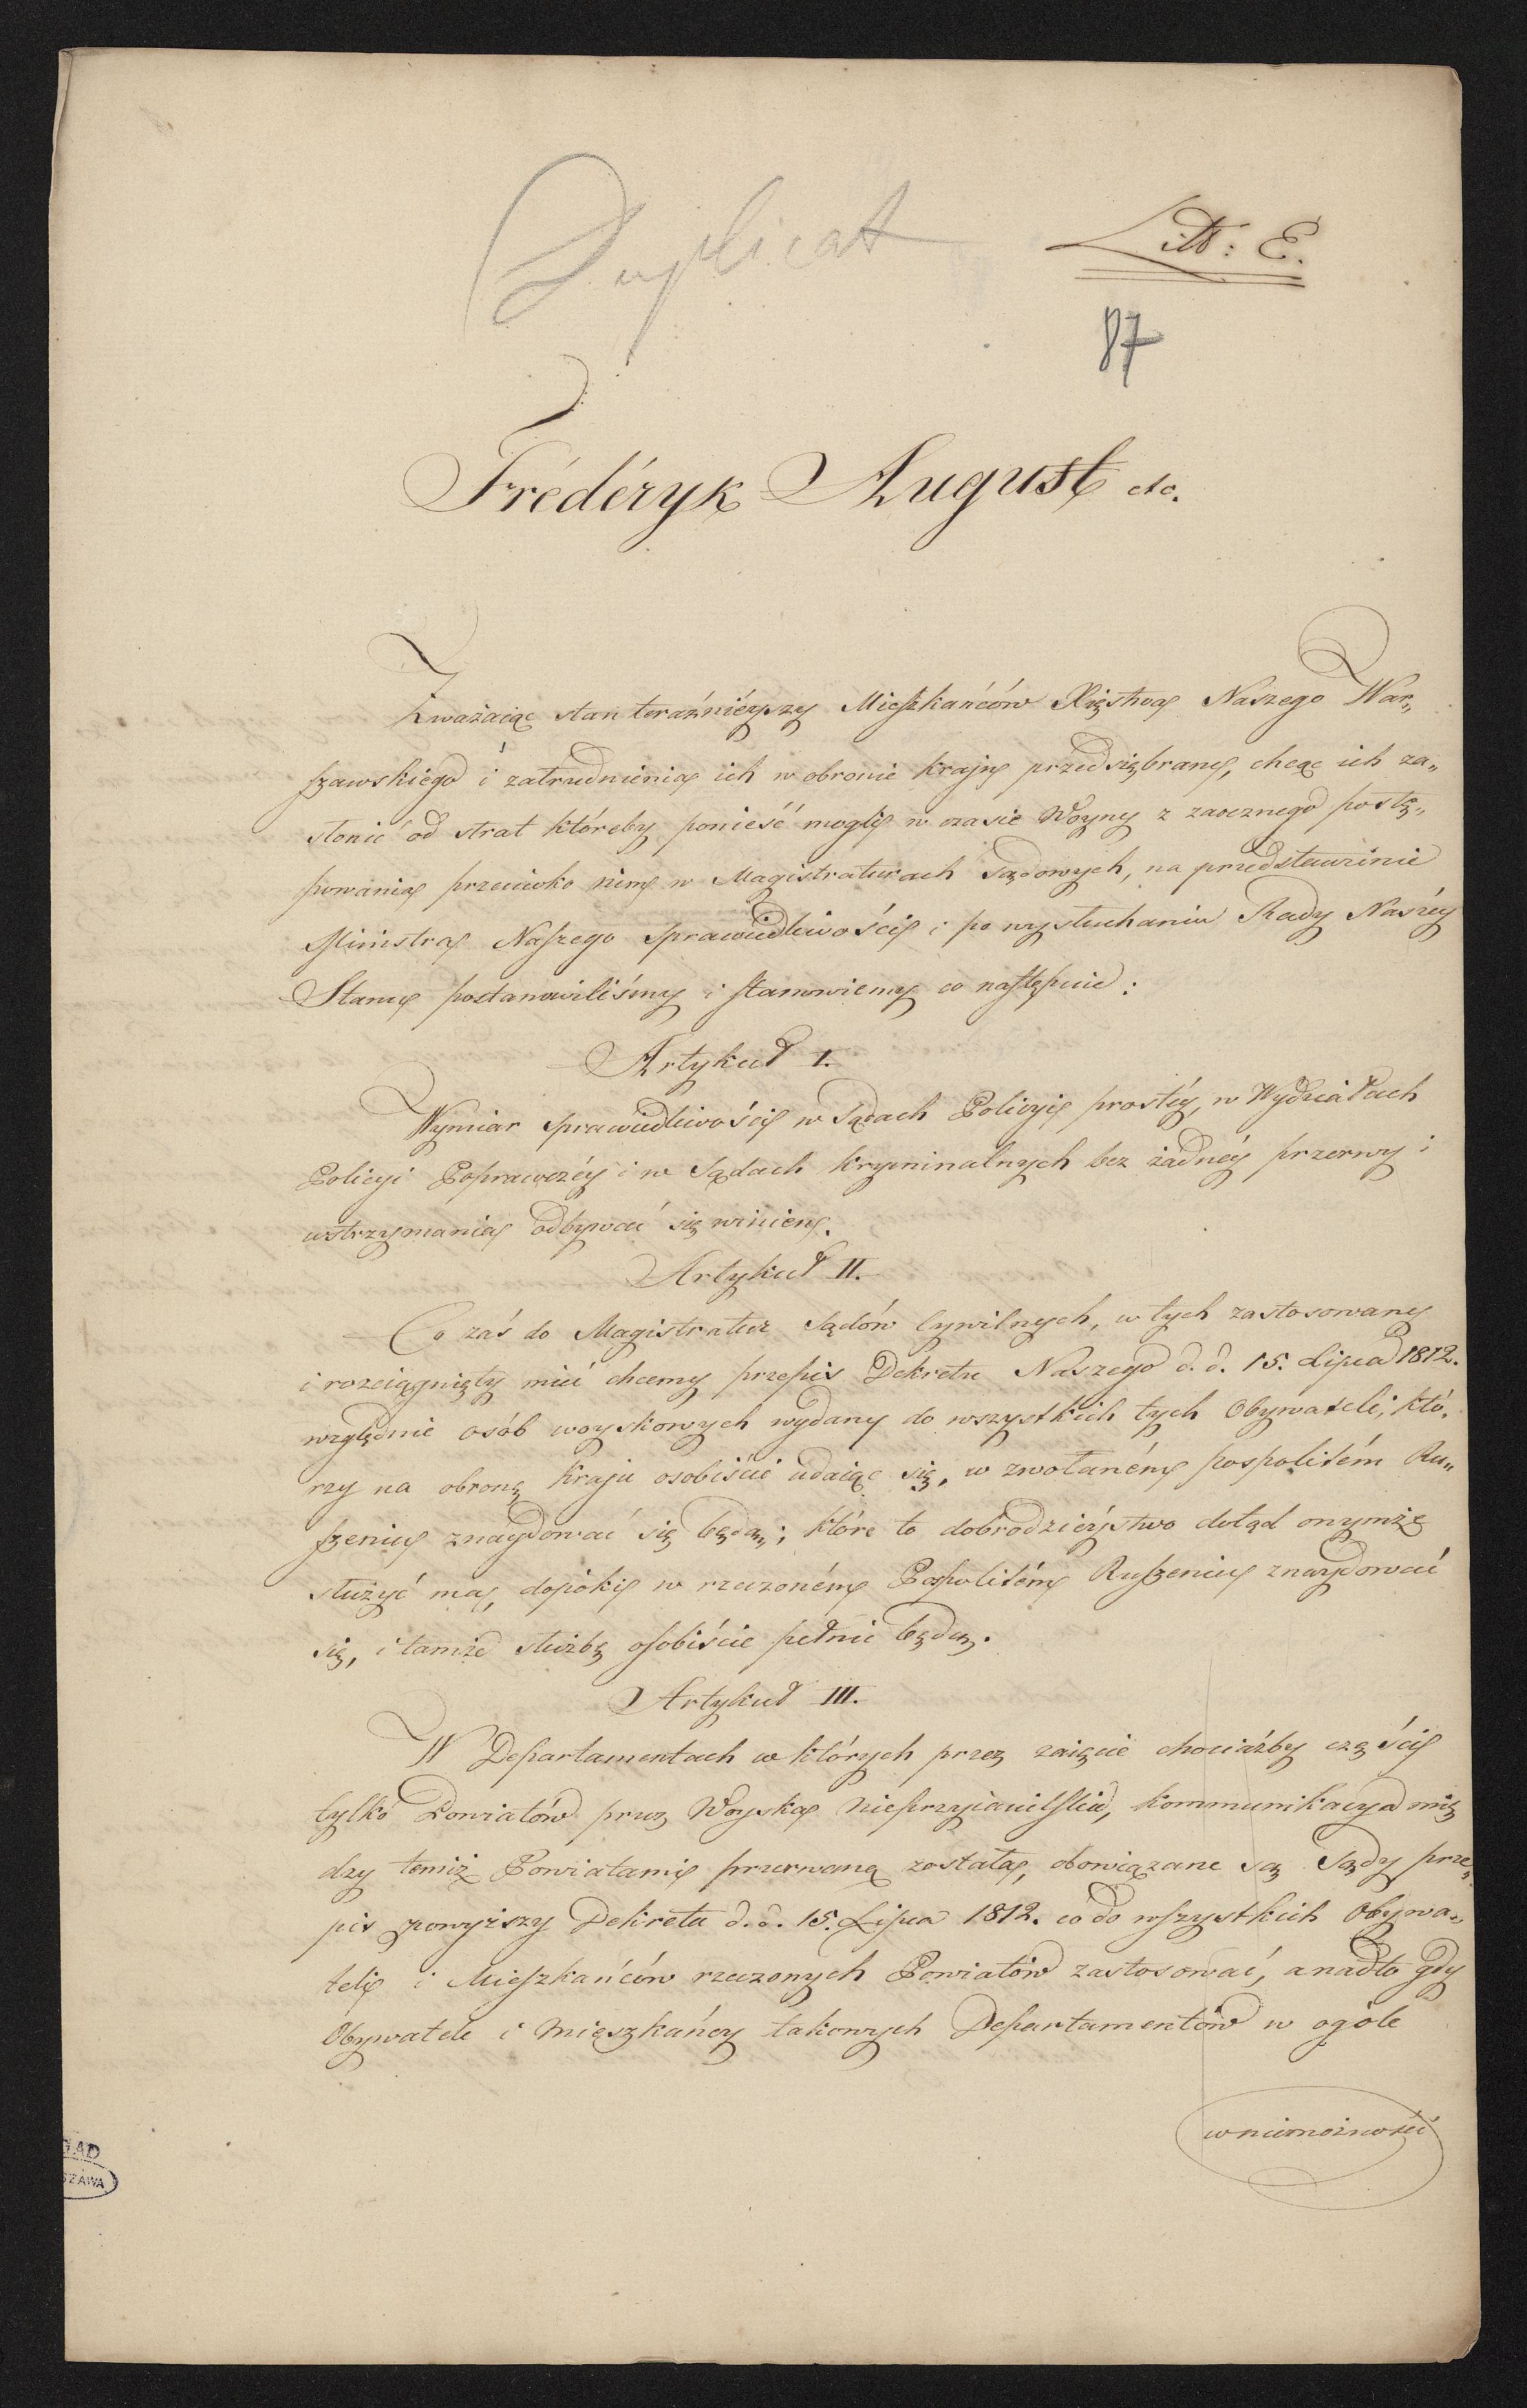 Duplicat
Litt: E.
87
Fréderyk August etc.
Zważaiąc stan teraźnieyszy Mieszkańców Xięstwa Naszego War„
szawskiego i zatrudnienia ich w obronie kraju przedsiębrane, chcąc ich za„
słonić od strat któreby ponieść mogli w czasie Woyny z zaocznego postę„
powania przeciwko nim w Magistraturach Sądowych, na przedstawienie
Ministra Naszego Sprawiedliwości i po wysłuchaniu Rady Naszéy
Stanu postanowiliśmy i stanowiemy co następuie:
Artykuł I.
Wymiar Sprawiedliwości w Sądach Policyi prostéy, w Wydziałach
Policyi Poprawczéy i w Sądach kryminalnych bez żadnéy przerwy i
wstrzymania odbywać się winien.
Artykuł II.
Co zaś do Magistratur Sądów Cywilnych, w tych zastosowany
i rozciągnięty mieć chcemy przepis Dekretu Naszego d. d. 15. Lipca 1812.
względnie osób woyskowych wydany do wszystkich tych Obywateli, któ„
rzy na obronę Kraju osobiście udaiąc się, w zwołaném pospolitém Ru„
szeniu znaydować się będą; które to dobrodzieystwo dotąd onymże
służyć ma, dopóki w rzeczoném Pospolitém Ruszeniu znaydować
się, i tamże służbę osobiście pełnić będą.
Artykuł III.
W Departamentach w których przez zaięcie chociażby części
tylko Powiatów przez Woyska Nieprzyiacielskie, kommunikacya mię
dzy temiż Powiatami przerwaną została, obowiązane są Sądy prze„
pis powyższy Dekretu d. d. 15. Lipca 1812. co do wszystkich Obywa„
teli i Mieszkańców rzeczonych Powiatów zastosować, a nadto gdy
Obywatele i Mieszkańcy takowych Departamentów w ogóle
w niemożności
ZAD
SZAWA